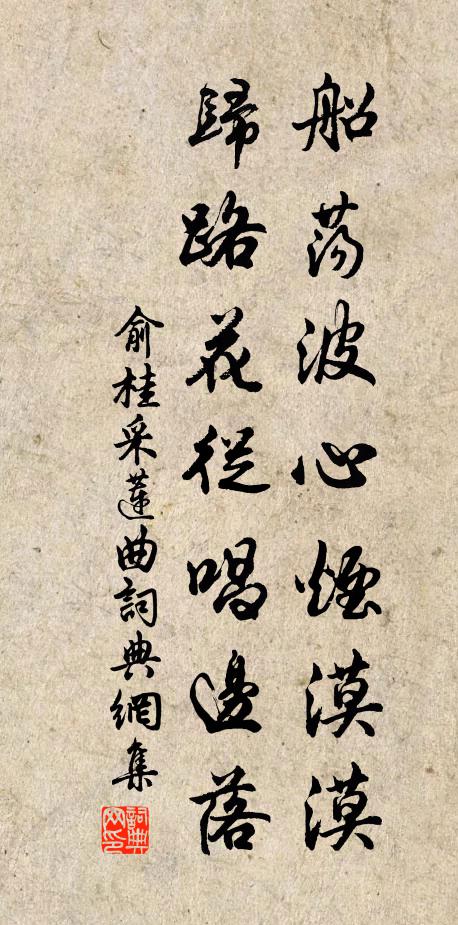 船蕩波心煙漠漠
歸路花從唱邊落
俞桂采蓮曲詞典網集
詞典網印